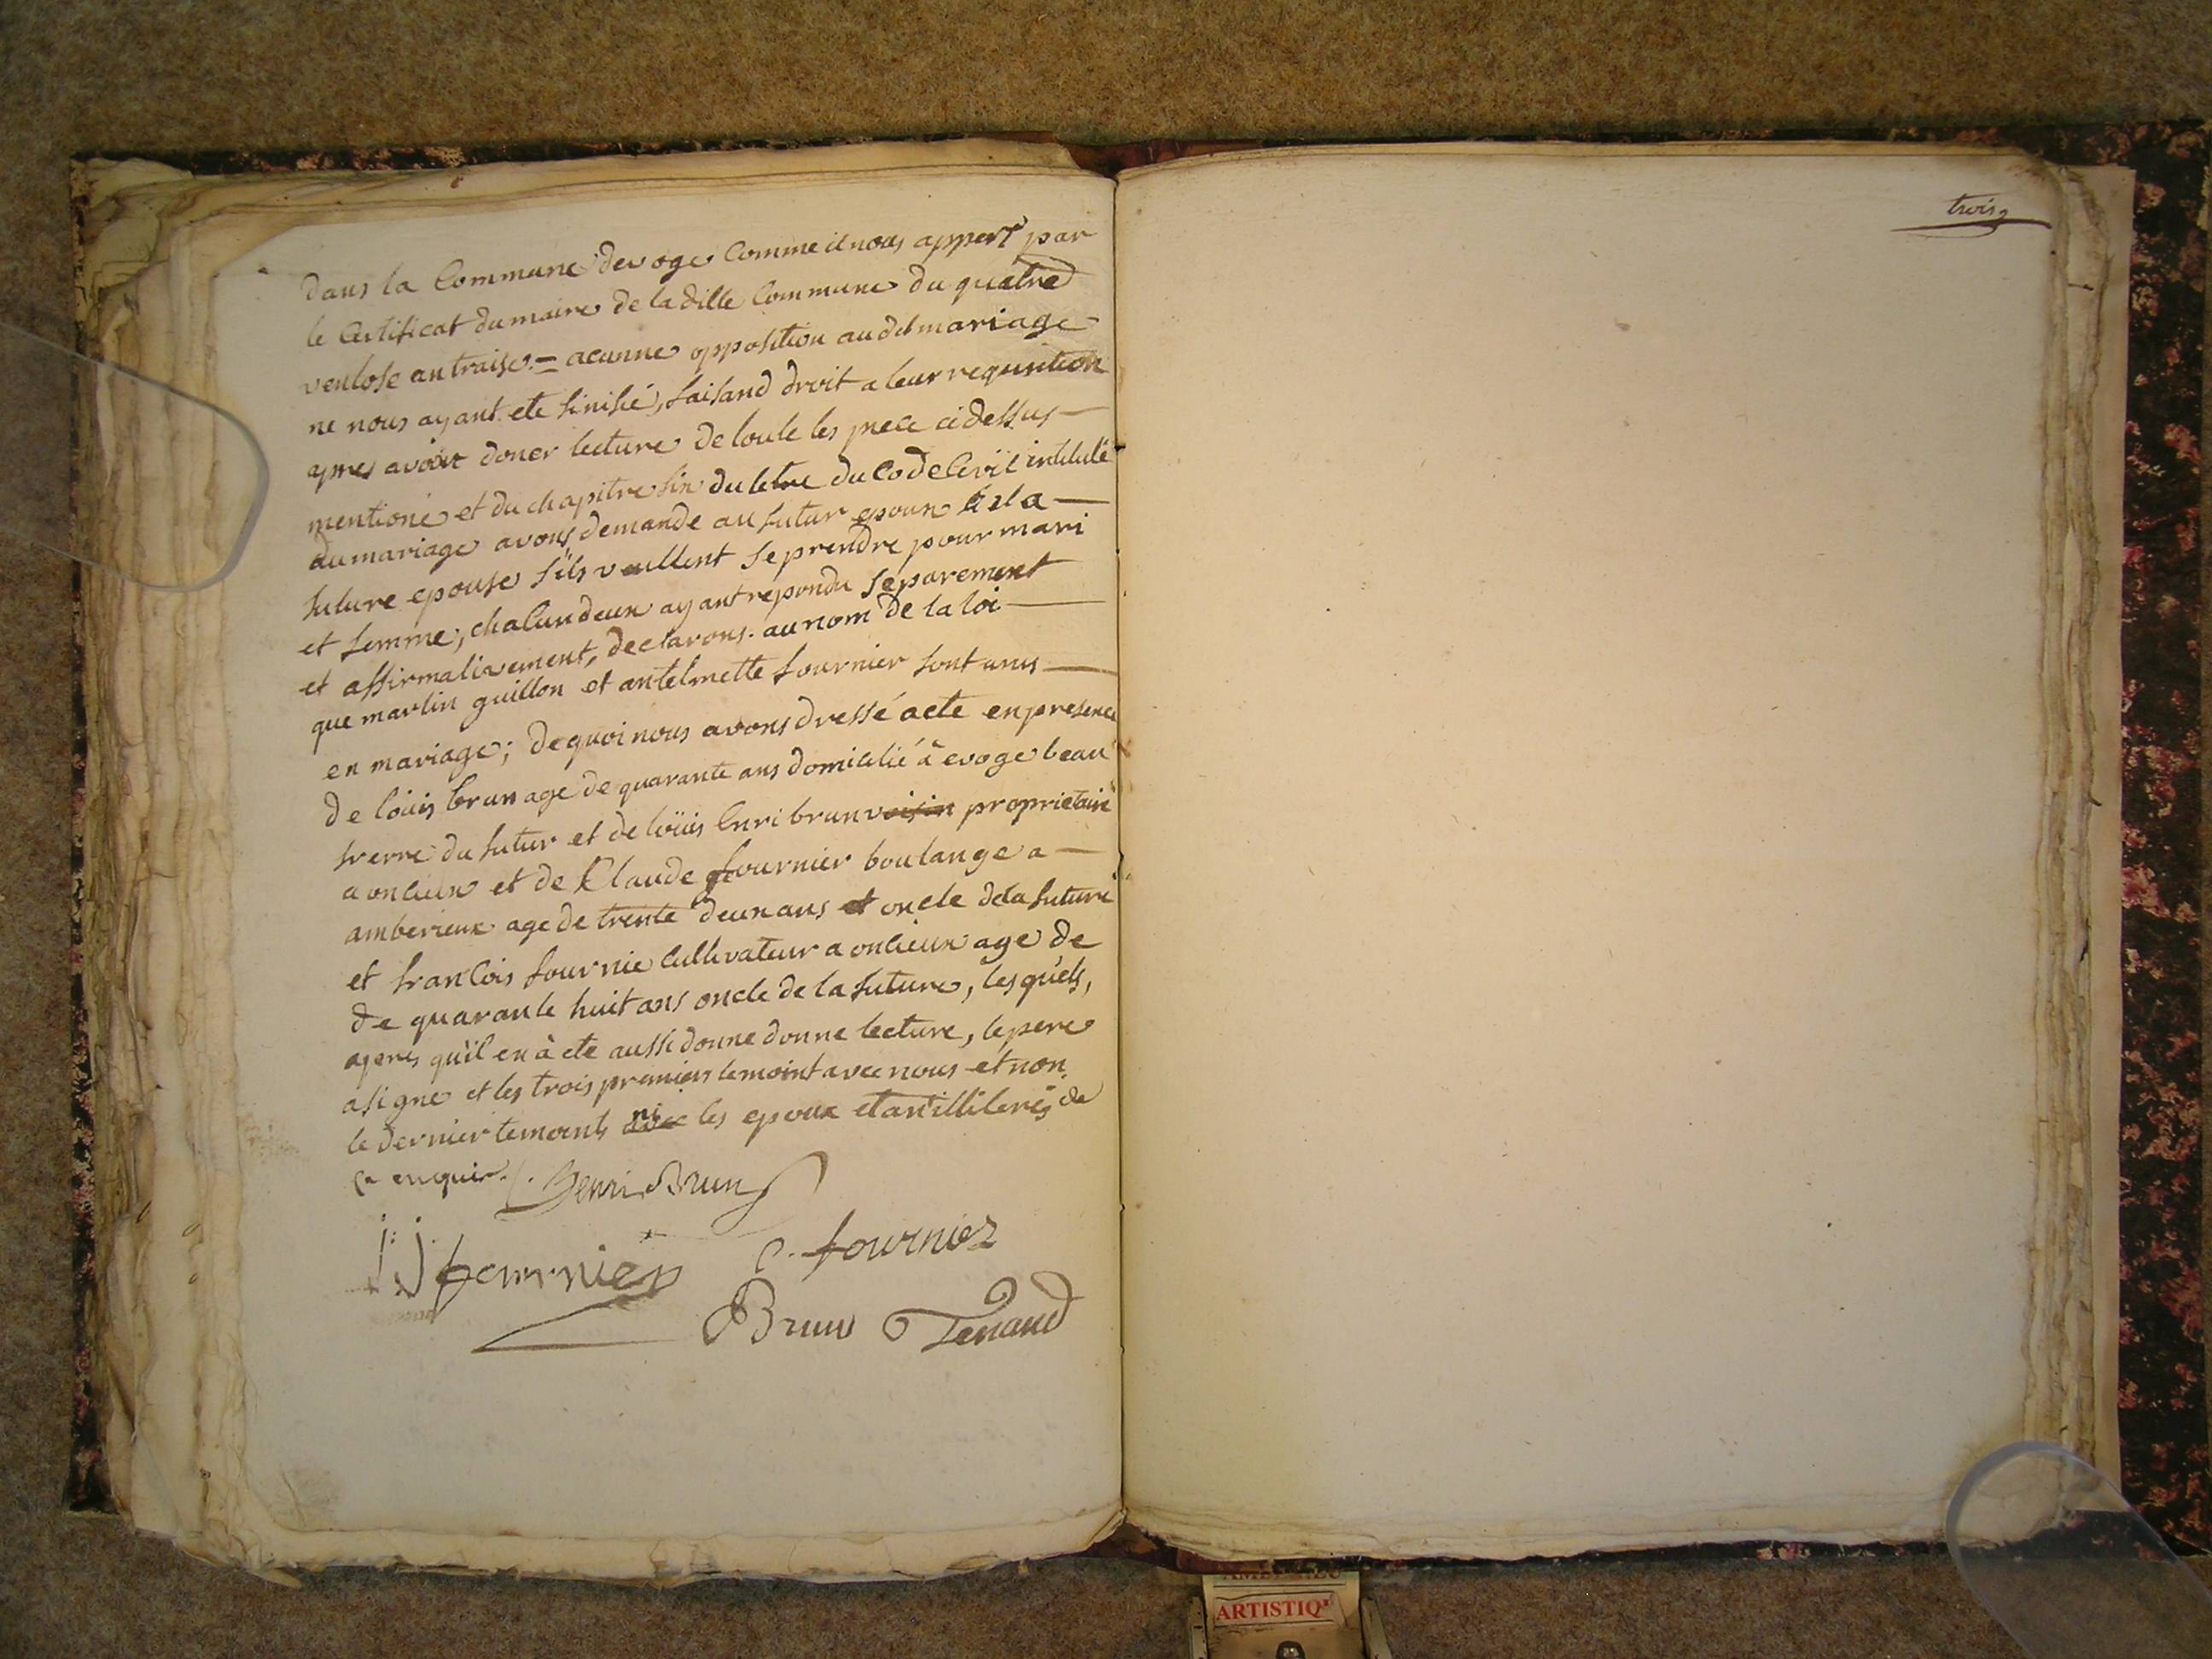 dans la Commune devoge Comme il nous appert par
le Certificat du maire de la ditte Commune du quatre
ventose an traise = acunne opposition audit mariage
ne nous ayant ete sinifié, faisand droit a leur requisition
apres avoir doner lecture de toute les piece ci dessus
mentioné et du chapitre six du letre du Code Civil intitulé
du mariage avons demandé au futur epoux et a la
future epouse s'ils veullent se prendre pour mari
et femme; chacun deux ayant repondu separement
et affirmativement, declarons au nom de la loi
que martin guillon et antelmette fournier sont unis
en mariage; de quoi nous avons dressé acte en presence
de loüis brun age de quarante ans domicilié à evoge beau
frerre du futur et de loüis henri brun voisin proprietaire
a oncieux et de Claude fournier boulange a
amberieux age de trente deux ans et oncle de la future
et francois fournie cultivateur a oncieux age de
de quarante huit ans oncle de la future, les quels,
apres qu'il en à ete aussi donne donne lecture, le pere
a signe et les trois premiers temoint avec nous et non
le dernier temoints ni les epoux etant illiterés de
ce enquir. L. henri Brun
J: J. fournier c. fournier
Brun Tenand
trois
ARTISTIQ